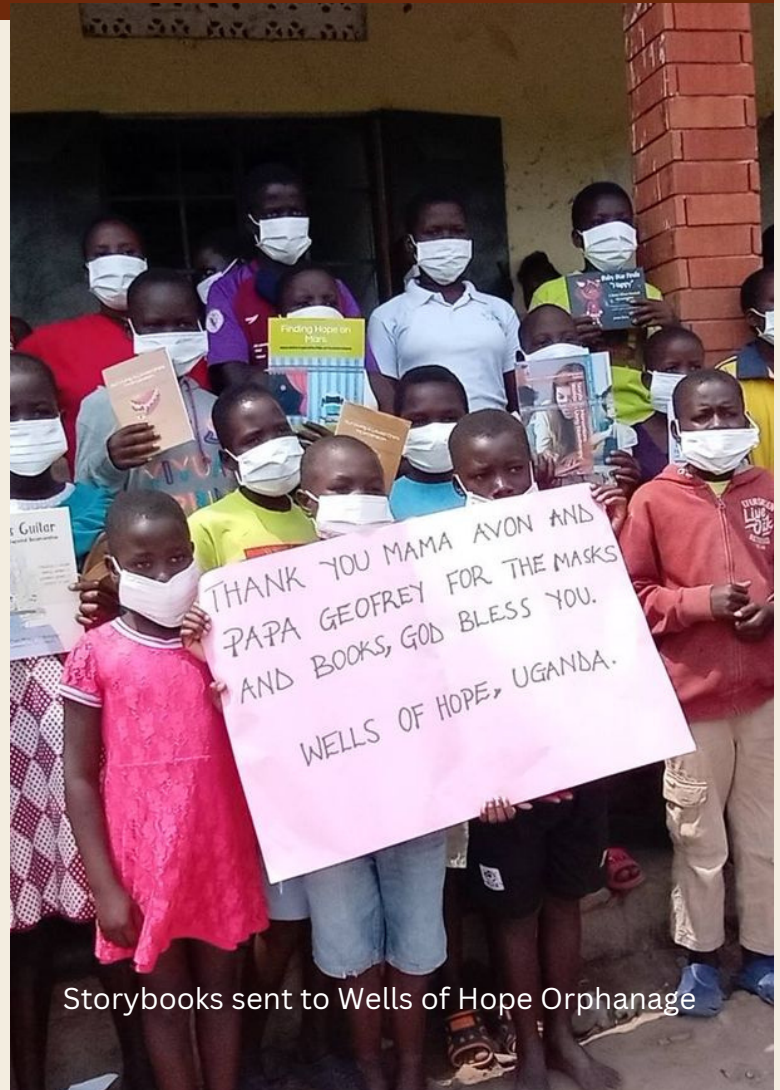 Finding Hope on
Mars
Baby Star Finds
"Happy"
s Guitar
LIVE
THANK YOU MAMA AVON AND
PAPA GEOFREY FOR THE MASKS
AND BOOKS, GOD BLESS YOU.
WELLS OF HOPE, UGANDA.
Storybooks sent to Wells of Hope Orphanage